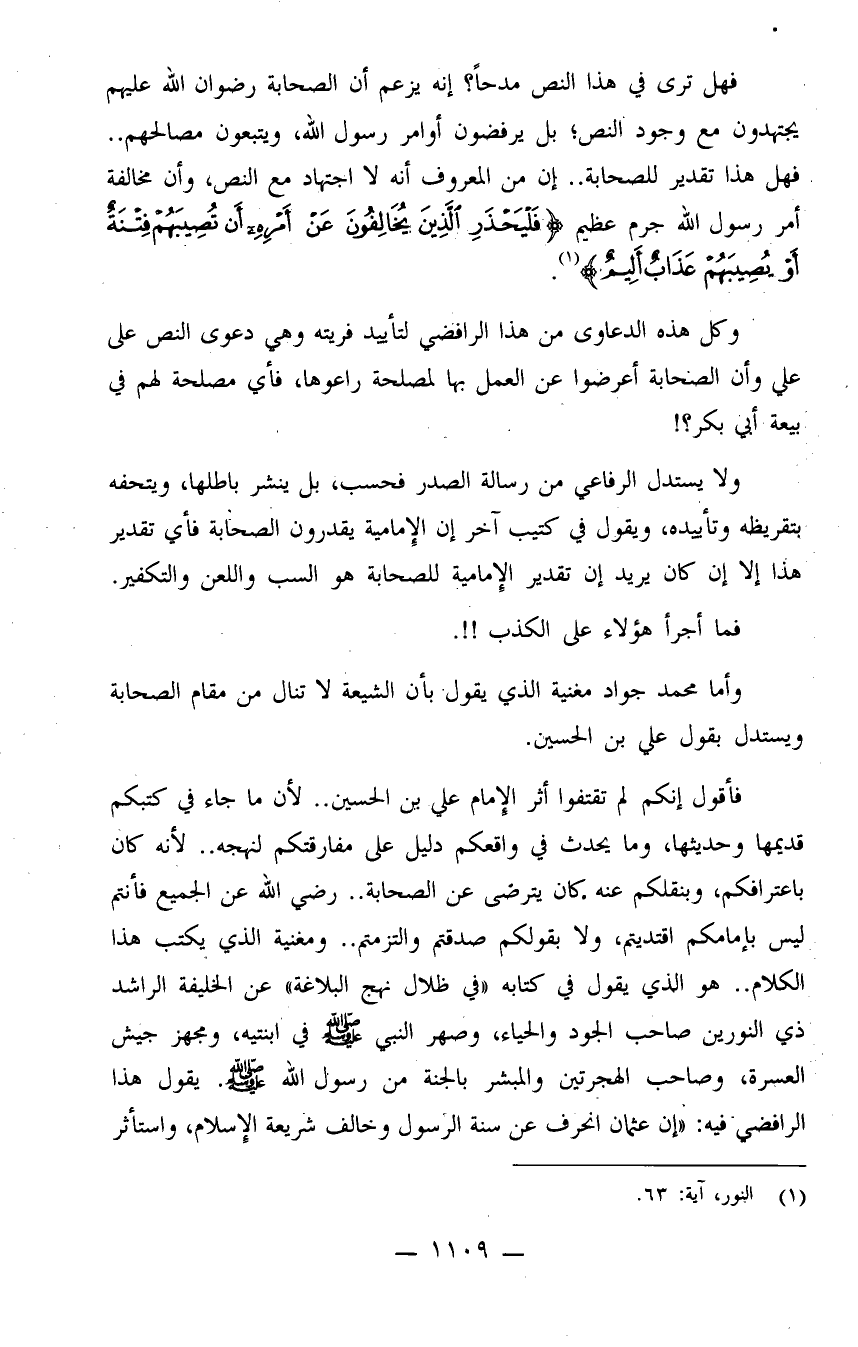 فهل ترى في هذا النص مدحاً؟ إنه يزعم أن الصحابة رضوان الله عليهم
يجتهدون مع وجود النص؛ بل يرفضون أوامر رسول الله، ويتبعون مصالحهم..
فهل هذا تقدير للصحابة.. إن من المعروف أنه لا اجتهاد مع النص، وأن مخالفة
أمر رسول الله جرم عظيم ﴿فَلْيَحْذَرِ ٱلَّذِينَ يُخَالِفُونَ عَنْ أَمْرِهِۦٓ أَن تُصِيبَهُمْ فِتْنَةٌ
أَوْ يُصِيبَهُمْ عَذَابٌ أَلِيمٌ﴾(١).
وكل هذه الدعاوى من هذا الرافضي لتأييد فريته وهي دعوى النص على
علي وأن الصحابة أعرضوا عن العمل بها لمصلحة راعوها، فأي مصلحة لهم في
بيعة أبي بكر؟!
ولا يستدل الرفاعي من رسالة الصدر فحسب، بل ينشر باطلها، ويتحفه
بتقريظه وتأييده، ويقول في كتيب آخر إن الإمامية يقدرون الصحابة فأي تقدير
هذا إلا إن كان يريد إن تقدير الإمامية للصحابة هو السب واللعن والتكفير.
فما أجرأ هؤلاء على الكذب !!.
وأما محمد جواد مغنية الذي يقول بأن الشيعة لا تنال من مقام الصحابة
ويستدل بقول علي بن الحسين.
فأقول إنكم لم تقتفوا أثر الإمام علي بن الحسين.. لأن ما جاء في كتبكم
قديمها وحديثها، وما يحدث في واقعكم دليل على مفارقتكم لنهجه.. لأنه كان
باعترافكم، وبنقلكم عنه كان يترضى عن الصحابة.. رضي الله عن الجميع فأنتم
ليس بإمامكم اقتديتم، ولا بقولكم صدقتم والتزمتم.. ومغنية الذي يكتب هذا
الكلام.. هو الذي يقول في كتابه «في ظلال نهج البلاغة» عن الخليفة الراشد
ذي النورين صاحب الجود والحياء، وصهر النبي ﷺ في ابنتيه، ومجهز جيش
العسرة، وصاحب الهجرتين والمبشر بالجنة من رسول الله ﷺ. يقول هذا
الرافضي فيه: «إن عثمان انحرف عن سنة الرسول وخالف شريعة الإسلام، واستأثر
(١) النور، آية: ٦٣.
— ١١٠٩ —